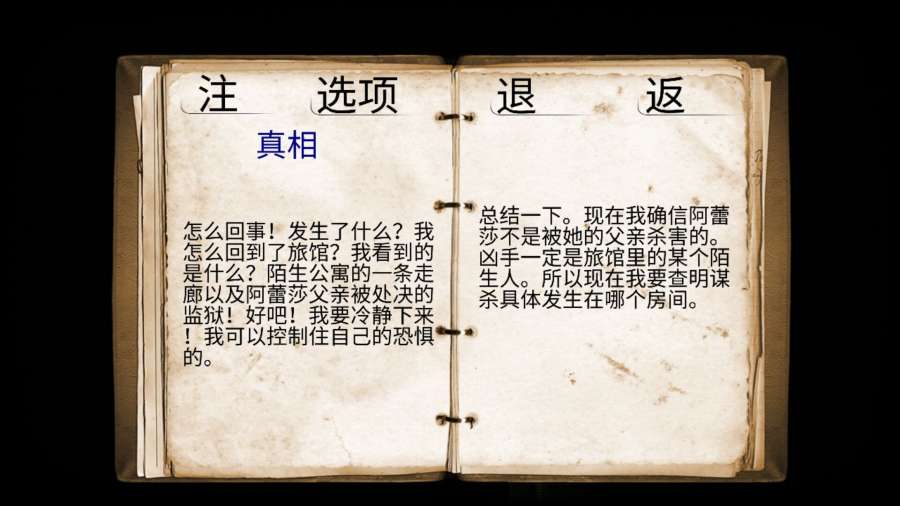 注 选项 退 返
真相
怎么回事！发生了什么？我
怎么回到了旅馆？我看到的
是什么？陌生公寓的一条走
廊以及阿蕾莎父亲被处决的
监狱！好吧！我要冷静下来
！我可以控制住自己的恐惧
的。
总结一下。现在我确信阿蕾
莎不是被她的父亲杀害的。
凶手一定是旅馆里的某个陌
生人。所以现在我要查明谋
杀具体发生在哪个房间。